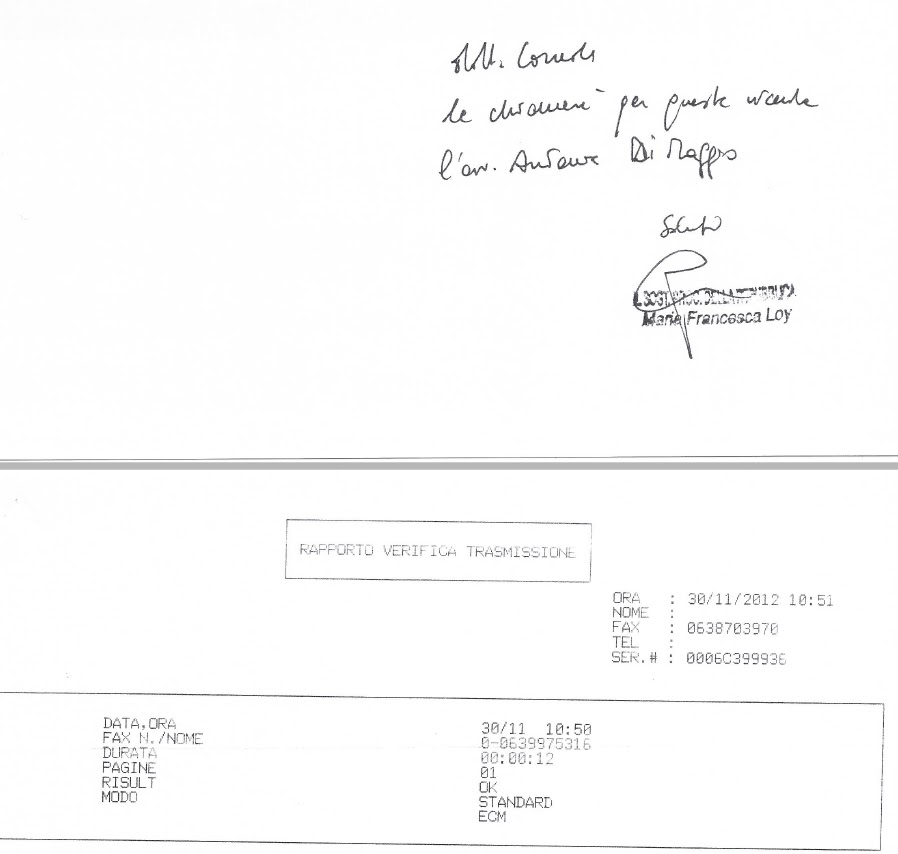 Dott.
la chiamerà per questa vicenda
l'avv. Di Maggio
Saluti
IL SOST. PROC. DELLA REPUBBLICA
Maria Francesca Loy
RAPPORTO VERIFICA TRASMISSIONE
ORA : 30/11/2012 10:51
NOME :
FAX : 0638703970
TEL :
SER.# : 0006C399936
DATA,ORA 30/11 10:50
FAX N./NOME 0-0639975316
DURATA 00:00:12
PAGINE 01
RISULT OK
MODO STANDARD
ECM